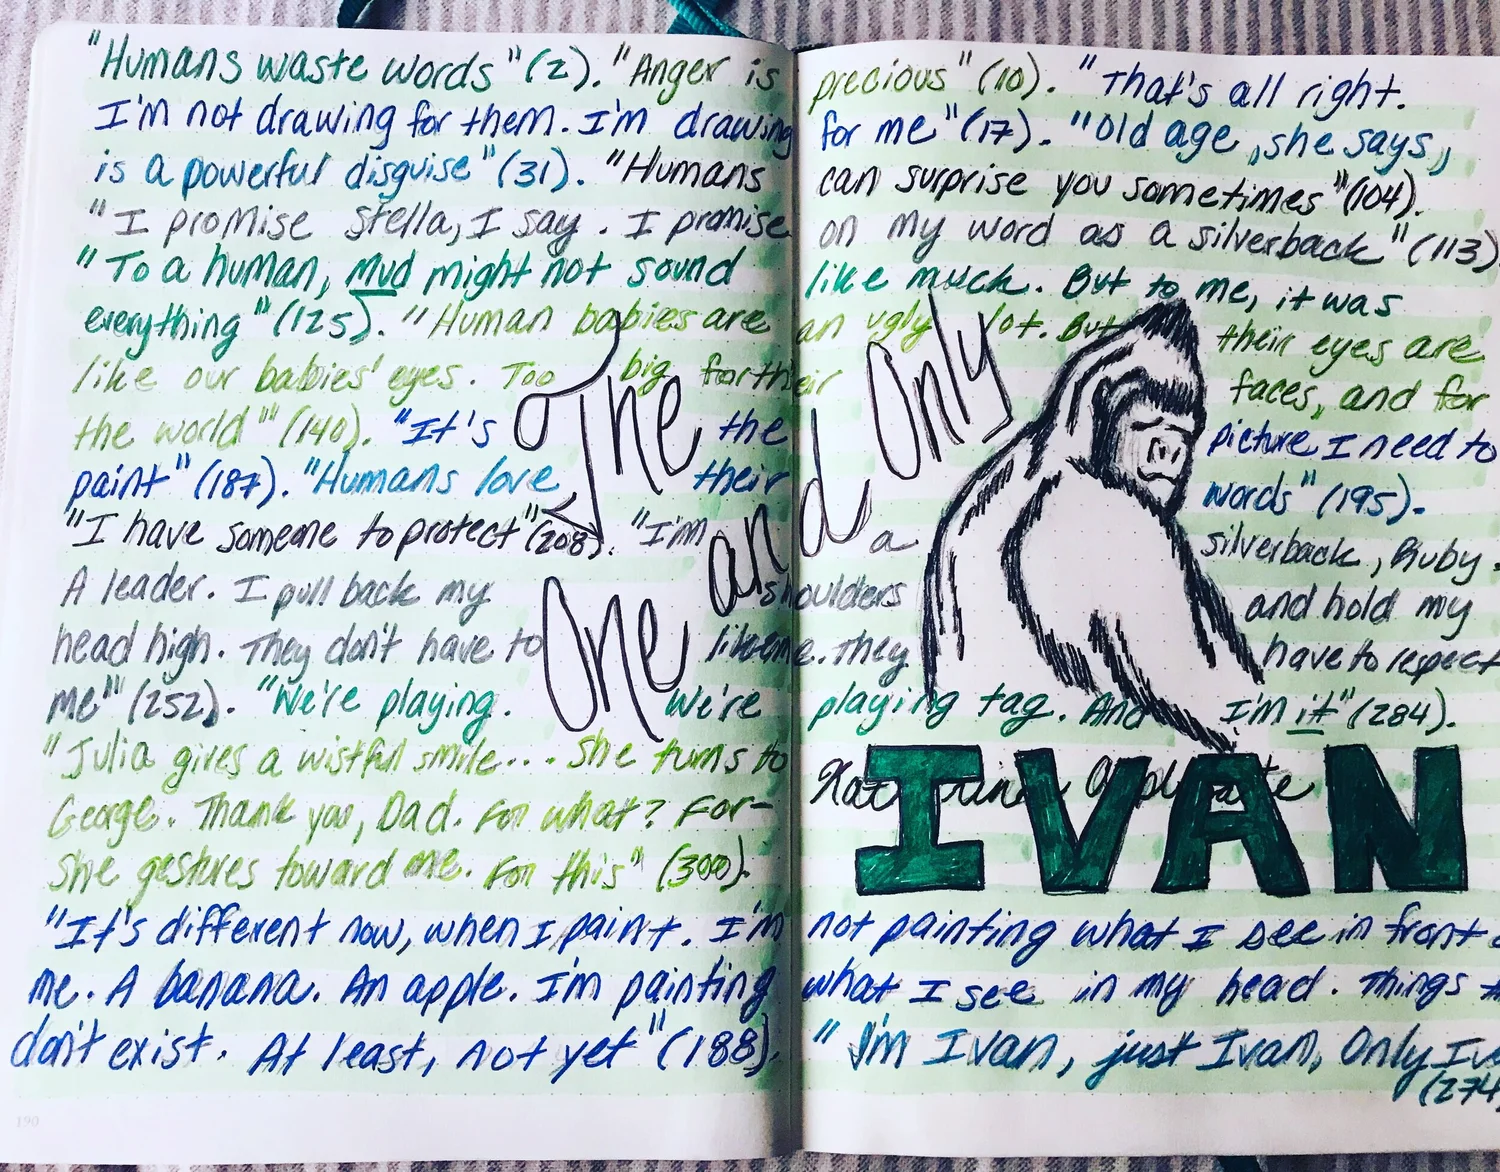 "Humans waste words" (2). "Anger is precious" (10). "That's all right.
I'm not drawing for them. I'm drawing for me" (17). "Old age, she says,
is a powerful disguise" (31). "Humans can surprise you sometimes" (104).
"I promise Stella, I say. I promise on my word as a silverback" (113)
"To a human, Mud might not sound like muck. But to me, it was
everything" (125). "Human babies are an ugly lot. But their eyes are
like our babies' eyes. Too big for their faces, and for
the world" (140). "It's the picture I need to
paint" (187). "Humans love their words" (195).
"I have someone to protect" (208). "I'm a silverback, Ruby.
A leader. I pull back my shoulders and hold my
head high. They don't have to like me. They have to respect
me" (252). "We're playing. We're playing tag. And I'm it" (284).
"Julia gives a wistful smile.... She turns to
George. Thank you, Dad. For what? For-
She gestures toward me. For this" (300).
Applegate
The One and Only
IVAN
"It's different now, when I paint. I'm not painting what I see in front
me. A banana. An apple. I'm painting what I see in my head. Things
don't exist. At least, not yet" (188). "I'm Ivan, just Ivan, Only
(274
190